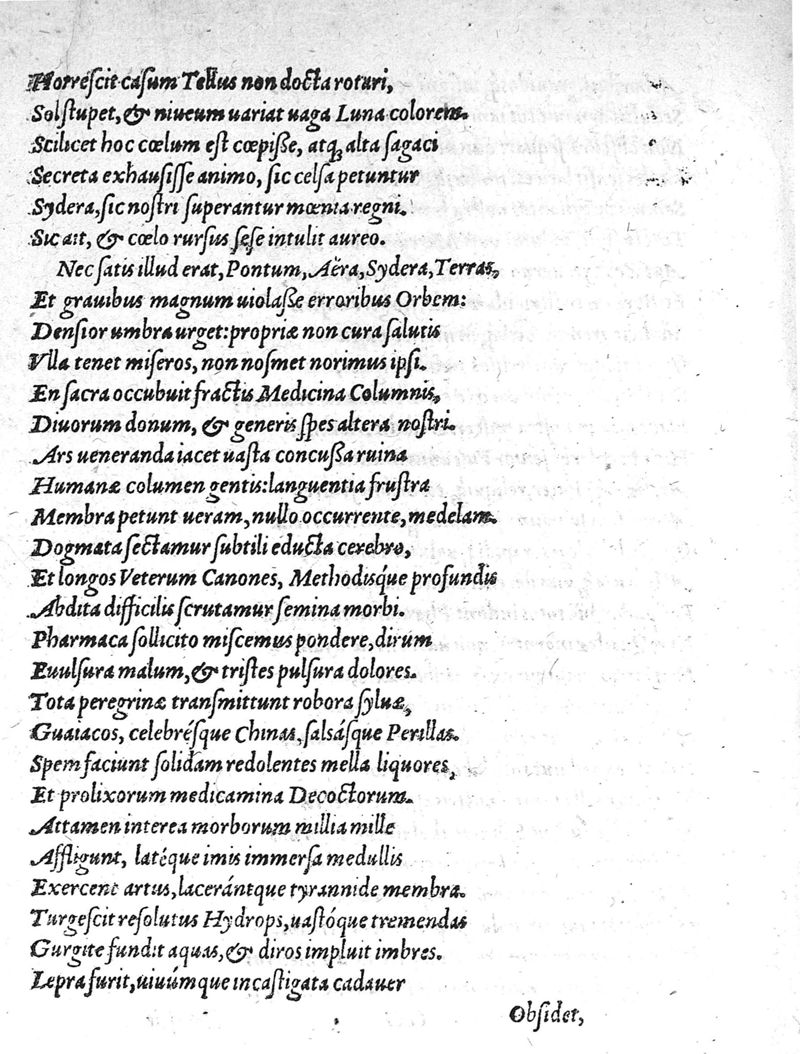 Horreſcit caſum Tellus non docta rotari,
Sol ſtupet, & niueum uariat uaga Luna colorem.
Scilicet hoc cœlum eſt cœpiſſe, atq; alta ſagaci
Secreta exhauſiſſe animo, ſic celſa petuntur
Sydera, ſic noſtri ſuperantur mœnia regni.
Sic ait, & cœlo rurſus ſeſe intulit aureo.
Nec ſatis illud erat, Pontum, Aëra, Sydera, Terras,
Et grauibus magnum uiolaſſe erroribus Orbem:
Denſior umbra urget: propriæ non cura ſalutis
Vlla tenet miſeros, non noſmet norimus ipſi.
En ſacra occubuit fractis Medicina Columnis,
Diuorum donum, & generis ſpes altera noſtri.
Ars ueneranda iacet uaſta concuſſa ruina
Humanæ columen gentis: languentia fruſtra
Membra petunt ueram, nullo occurrente, medelam.
Dogmata ſectamur ſubtili educta cerebro,
Et longos Veterum Canones, Methodisq́ue profundis
Abdita difficilis ſcrutamur ſemina morbi.
Pharmaca ſollicito miſcemus pondere, dirum
Euulſura malum, & triſtes pulſura dolores.
Tota peregrinæ tranſmittunt robora ſyluæ,
Guaiacos, celebréſque Chinas, ſalsáſque Perillas.
Spem faciunt ſolidam redolentes mella liquores,
Et prolixorum medicamina Decoctorum.
Attamen interea morborum millia mille
Affligunt, latéque imis immerſa medullis
Exercent artus, laceránt­que tyrannide membra.
Turgeſcit reſolutus Hydrops, uaſtóque tremendas
Gurgite fundit aquas, & diros impluit imbres.
Lepra furit, uiuúmque incaſtigata cadauer
Obſidet,